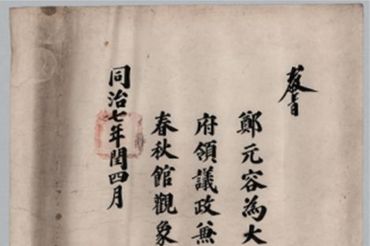 教旨
鄭元容為大
府領議政兼
春秋館觀象
同治七年閏四月